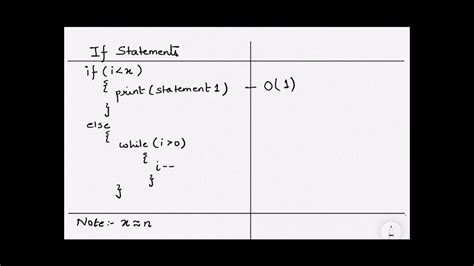 If Statements
if (i<x)
{ print (statement 1) — O(1)
}
else
{
while (i>0)
{
i--
}
}
Note:- x≈n